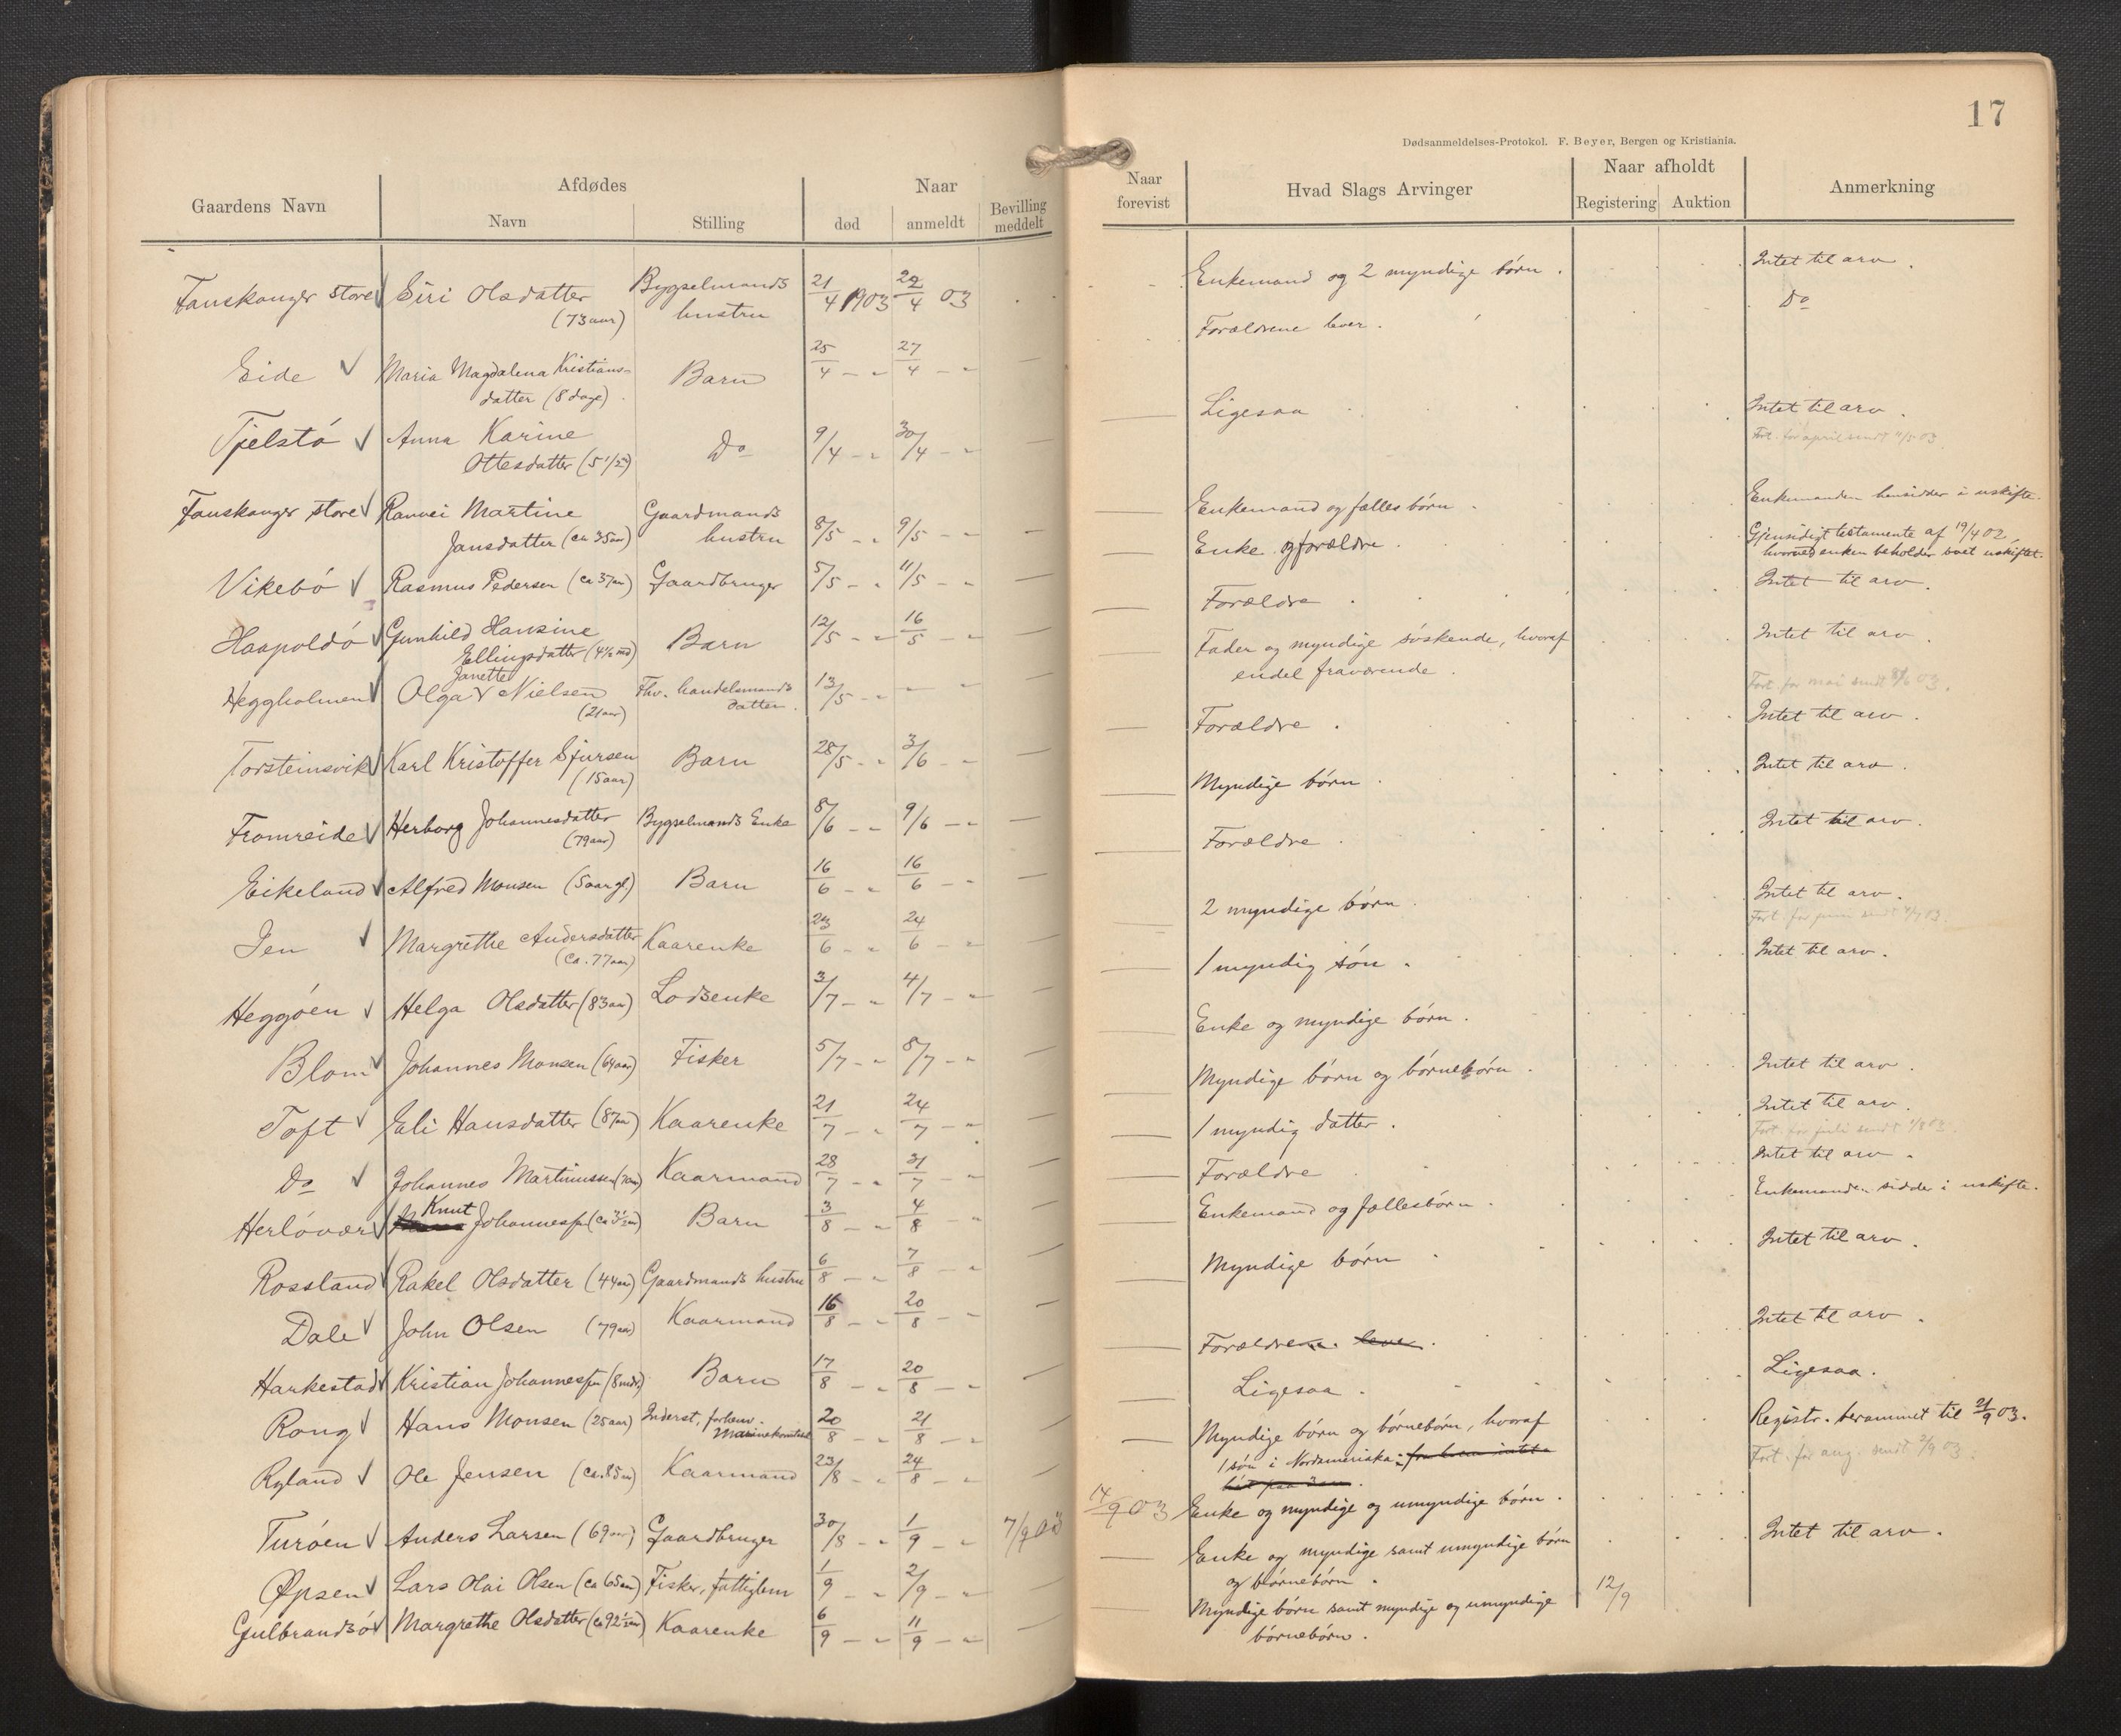 17
Dødsanmeldelses-Protokol. F. Beyer, Bergen og Kristiania.
Gaardens Navn
Afdødes
Navn
Stilling
Naar
død
anmeldt
Bevilling meddelt
Fanskanger store Siri Olsdatter Bygselmands 21/4 1903 22/4 03
(73 aar) hustru
Eide Maria Magdalena Kristians- Barn 25/4 – " 27/4 – "
datter (8 dage)
Tjelstö Anna Karine Do 9/4 – " 30/4 – "
Ottesdatter (5 1/2)
Fanskanger store Rannei Martine Gaardmands
Jansdatter (ca 35 aar) hustru 8/5 – " 9/5 – "
Vikebö Rasmus Pedersen (ca 37 aar) Gaardbruger 5/5 – " 11/5 – "
Haapoldö Gunhild Hansine Barn 12/5 – " 16/5 – "
Ellingsdatter (4 1/2 md)
Janette
Heggholmen Olga Nielsen Fhv. handelsmands 13/5 – " – "
(21 aar) datter.
Torsteinsvik Karl Kristoffer Sjursen Barn 28/5 – " 3/6 – "
(15 aar)
Fromreide Herborg Johannesdatter Bygselmands Enke 8/6 – " 9/6 – "
(79 aar)
Eikeland Alfred Monsen (5 aar gl) Barn 16/6 – " 16/6 – "
Jen Margrethe Andersdatter Kaarenke 23/6 – " 24/6 – "
(ca. 77 aar)
Heggöen Helga Olsdatter (83 aar) Lodsenke 3/7 – " 4/7 – "
Blom Johannes Monsen (64 aar) Fisker 5/7 – " 8/7 – "
Toft Eli Hansdatter (87 aar) Kaarenke 21/7 – " 24/7 – "
Do Johannes Martinussen Kaarmand 28/7 – " 31/7 – "
Knut
Herlövær Johannessen (ca 3 1/2 aar) Barn 3/8 – " 4/8 – "
Rossland Rakel Olsdatter (44 aar) Gaardmands hustru 6/8 – " 7/8 – "
Dale John Olsen (79 aar) Kaarmand 16/8 – " 20/8 – "
Harkestad Kristian Johannessen (8 mdr) Barn 17/8 – " 20/8 – "
Rong Hans Monsen (25 aar) Inderst, forhenv. 20/8 – " 21/8 – "
Ryland Ole Jensen (ca. 85 aar) Kaarmand 23/8 – " 24/8 – "
Turöen Anders Larsen (69 aar) Gaardbruger 30/8 – " 1/9 – " 7/9 03
Øpsen Lars Olai Olsen (ca 65 aar) Fisker, fattiglem 1/9 – " 2/9 – "
Gulbrandsö Margrethe Olsdatter (ca 92 1/2 aar) Kaarenke 6/9 – " 11/9 – "
Naar forevist
Hvad Slags Arvinger
Naar afholdt
Registering
Auktion
Anmerkning
Enkemand og 2 myndige börn. Intet til arv.
Forældrene lever. Do
Ligesaa Intet til arv.
Fort. for april sendt 4/5 03
Enkemand og fælles börn. Enkemanden hensidder i uskifte.
Enke og forældre. Gjensidigt testamente af 19/4 02,
hvorved enken beholder boet uskiftet.
Forældre. Intet til arv.
Fader og myndige söskende, hvoraf Intet til arv.
endel fraværende.
Fort. for mai sendt 8/6 03.
Forældre. Intet til arv.
Myndige börn. Intet til arv.
Forældre. Intet til arv.
2 myndige börn. Intet til arv.
Fort. for juni sendt 4/7 03.
1 myndig sön. Intet til arv.
Enke og myndige börn.
Myndige börn og börnebörn. Intet til arv.
1 myndig datter. Intet til arv.
Fort. for juli sendt 1/8 03.
Forældre Intet til arv.
Enkemand og fællesbörn. Enkemanden sidder i uskifte.
Myndige börn Intet til arv.
Forældrene. leve. Intet til arv.
Ligesaa. Ligesaa.
Myndige börn og börnebörn, hvoraf Registr. berammet til 21/9 03.
1 sön i Nordamerika
Fort. for aug. sendt 2/9 03.
14/9 03 Enke og myndige og umyndige börn.
Enke og myndige samt umyndige börn Intet til arv.
og börnebörn.
Myndige börn samt myndige og umyndige 12/9
börnebörn.